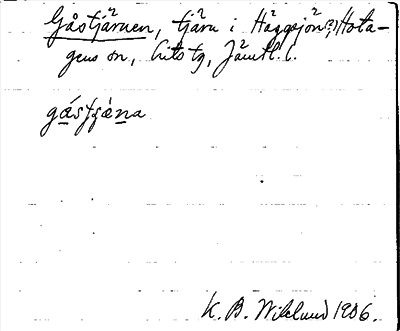 Gåstjärnen, tjärn i Häggsjön?, Hota-
gens sn, Lits tg, Jämtl. l.
gåstjäna
K. B. Wiklund 1906.